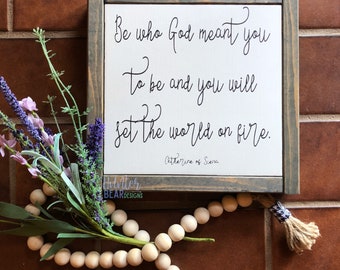 Be who God meant you
to be and you will
set the world on fire.
Catherine of Siena
BEAR DESIGNS